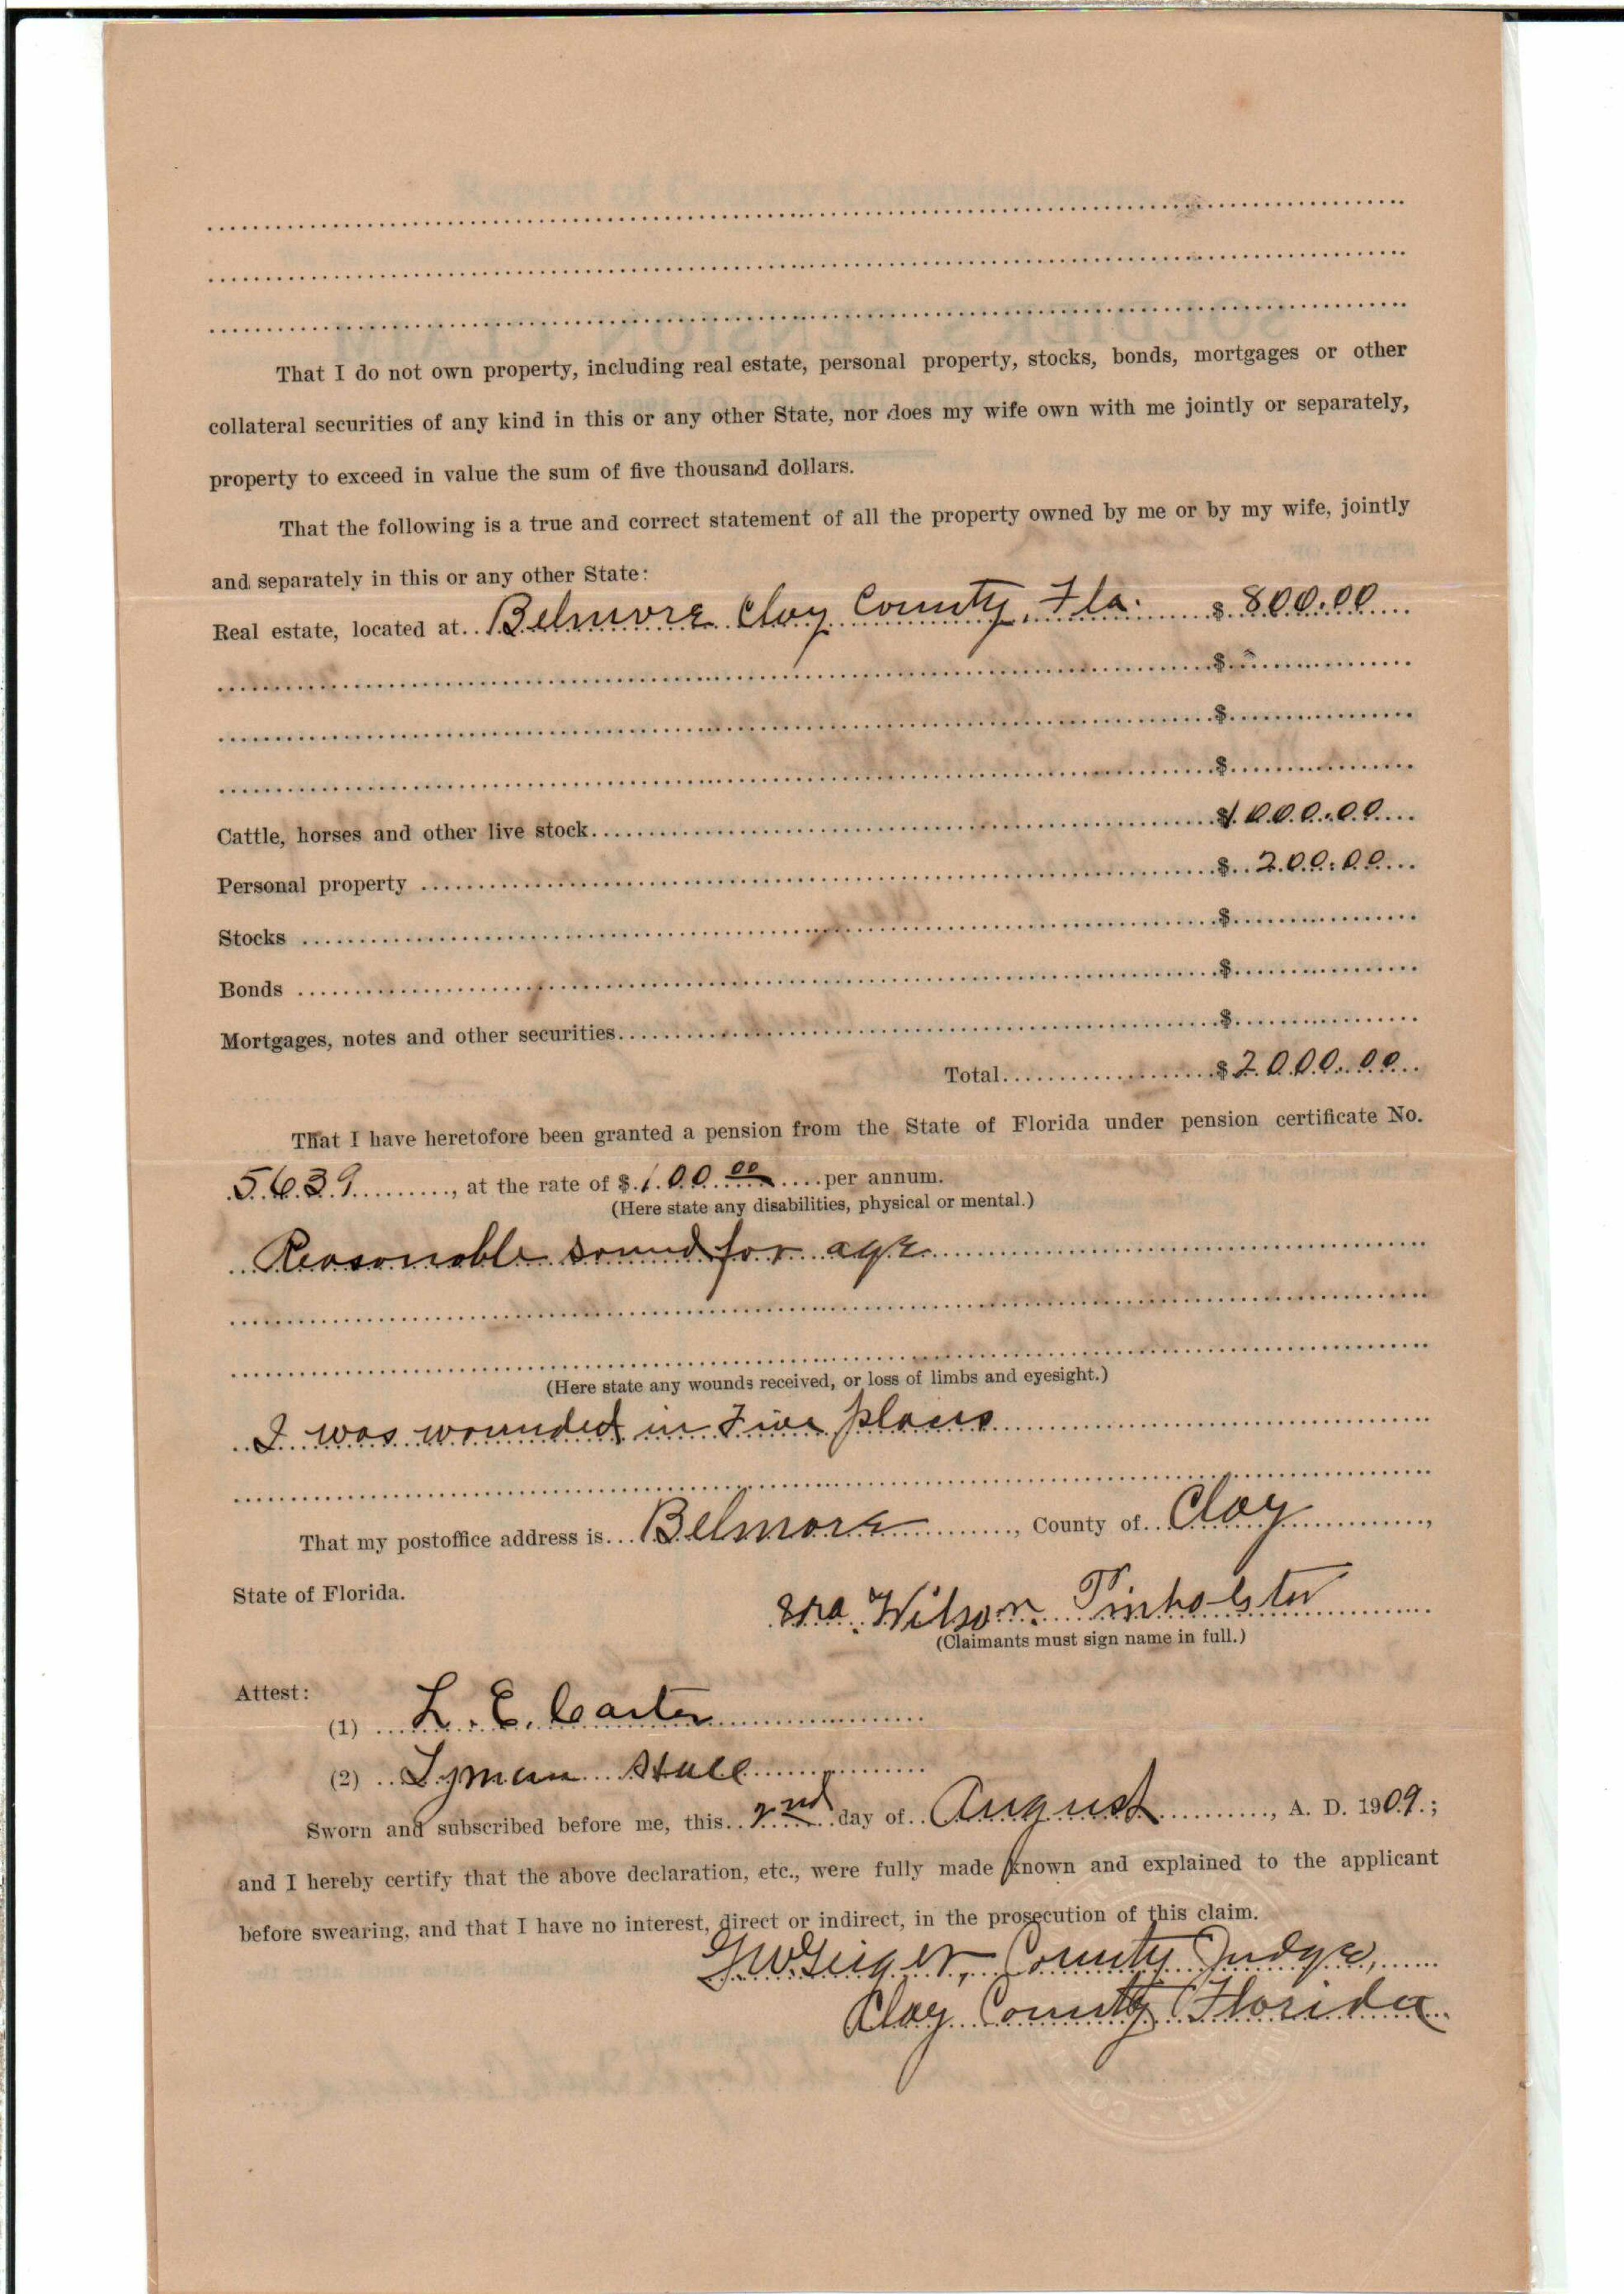 That I do not own property, including real estate, personal property, stocks, bonds, mortgages or other
collateral securities of any kind in this or any other State, nor does my wife own with me jointly or separately,
property to exceed in value the sum of five thousand dollars.
That the following is a true and correct statement of all the property owned by me or by my wife, jointly
and separately in this or any other State:
Real estate, located at Belmore Clay County, Fla. $ 800.00
$
$
$
Cattle, horses and other live stock $1000.00
Personal property $ 200.00
Stocks $
Bonds $
Mortgages, notes and other securities $
Total $2000.00
That I have heretofore been granted a pension from the State of Florida under pension certificate No.
5639, at the rate of $100.00 per annum.
(Here state any disabilities, physical or mental.)
Reasonable sound for age
(Here state any wounds received, or loss of limbs and eyesight.)
I was wounded in Five places
That my postoffice address is Belmore, County of Clay,
State of Florida.
Wilson Pinholster
(Claimants must sign name in full.)
Attest:
(1) L. E. Carter
(2) Lyman Hall
Sworn and subscribed before me, this 2nd day of August, A. D. 1909.;
and I hereby certify that the above declaration, etc., were fully made known and explained to the applicant
before swearing, and that I have no interest, direct or indirect, in the prosecution of this claim.
G W Geiger, County Judge,
Clay County Florida